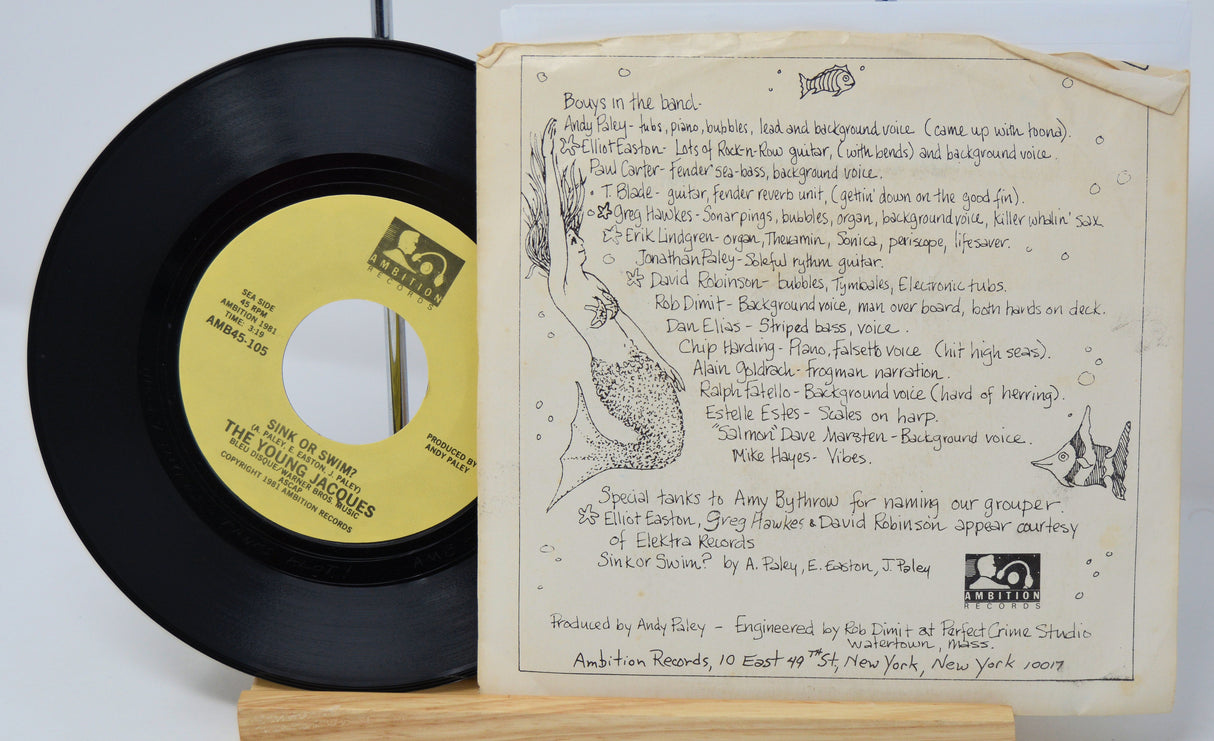 AMBITION
RECORDS
SEA SIDE
45 RPM
AMBITION 1981
TIME: 3:19
AMB45-105
SINK OR SWIM?
(A. PALEY, E. EASTON, J. PALEY)
THE YOUNG JACQUES
BLEU DISQUE/WARNER BROS. MUSIC
ASCAP
COPYRIGHT 1981 AMBITION RECORDS
PRODUCED BY
ANDY PALEY
Bouys in the band-
Andy Paley- tubs, piano, bubbles, lead and background voice (came up with toona).
Elliot Easton- Lots of Rock-n-Row guitar, (with bends) and background voice.
Paul Carter- Fender sea-bass, background voice.
T. Blade- guitar, fender reverb unit, (gettin' down on the good fin).
Greg Hawkes- Sonar pings, bubbles, organ, background voice, killer whalin' sax
Erik Lindgren- organ, Thexamin, Sonica, periscope, lifesaver.
Jonathan Paley- Soleful rythm guitar.
David Robinson- bubbles, Tymbales, Electronic tubs.
Rob Dimit- Background voice, man over board, both hands on deck.
Dan Elias- Striped bass, voice.
Chip Harding- Piano, falsetto voice (hit high seas).
Alain Goldrach- frogman narration.
Ralph Fatello- Background voice (hard of herring).
Estelle Estes- Scales on harp.
"Salmon" Dave Marsten- Background voice.
Mike Hayes- Vibes.
Special tanks to Amy Bythrow for naming our grouper.
Elliot Easton, Greg Hawkes & David Robinson appear courtesy
of Elektra Records
Sink or Swim? by A. Paley, E. Easton, J. Paley
AMBITION
RECORDS
Produced by Andy Paley - Engineered by Rob Dimit at Perfect Crime Studio
Watertown, Mass.
Ambition Records, 10 East 49TH St, New York, New York 10017